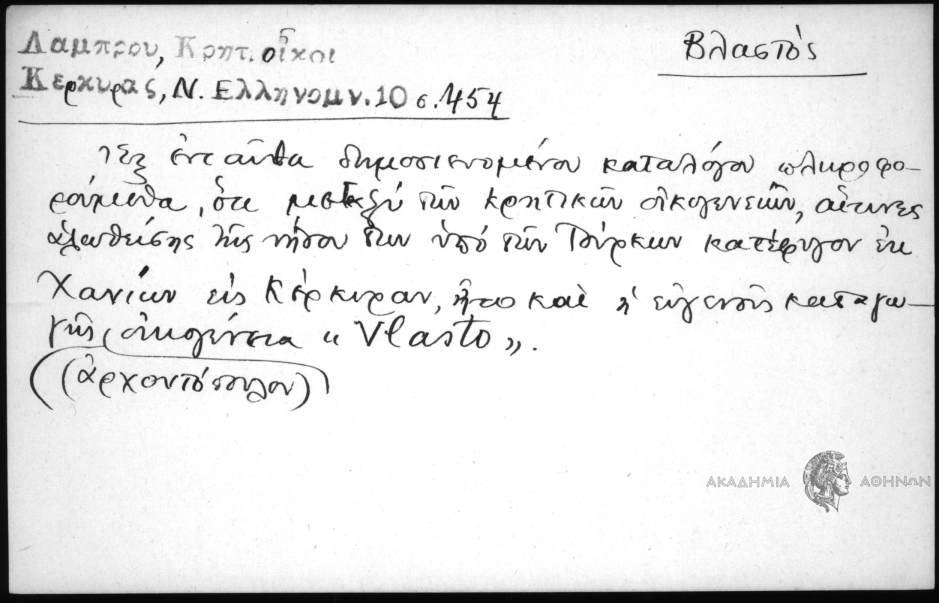 Λαμπρου, Κρητ. οἶκοι
Βλαστὸς
Κερκυρας, Ν. Ελληνομν. 10 σ. 454
Ἐξ ἐνταῦθα δημοσιευομένου καταλόγου πληροφο-
ρούμεθα, ὅτι μεταξὺ τῶν κρητικῶν οἰκογενειῶν, αἵτινες
ἁλωθείσης τῆς νήσου των ὑπὸ τῶν Τούρκων κατέφυγον ἐκ
Χανίων εἰς Κέρκυραν, ἦτο καὶ ἡ εὐγενοῦς καταγω-
γῆς οἰκογένεια « Vlasto ».
(ἀρχοντόπουλον)
ΑΚΑΔΗΜΙΑ ΑΘΗΝΩΝ